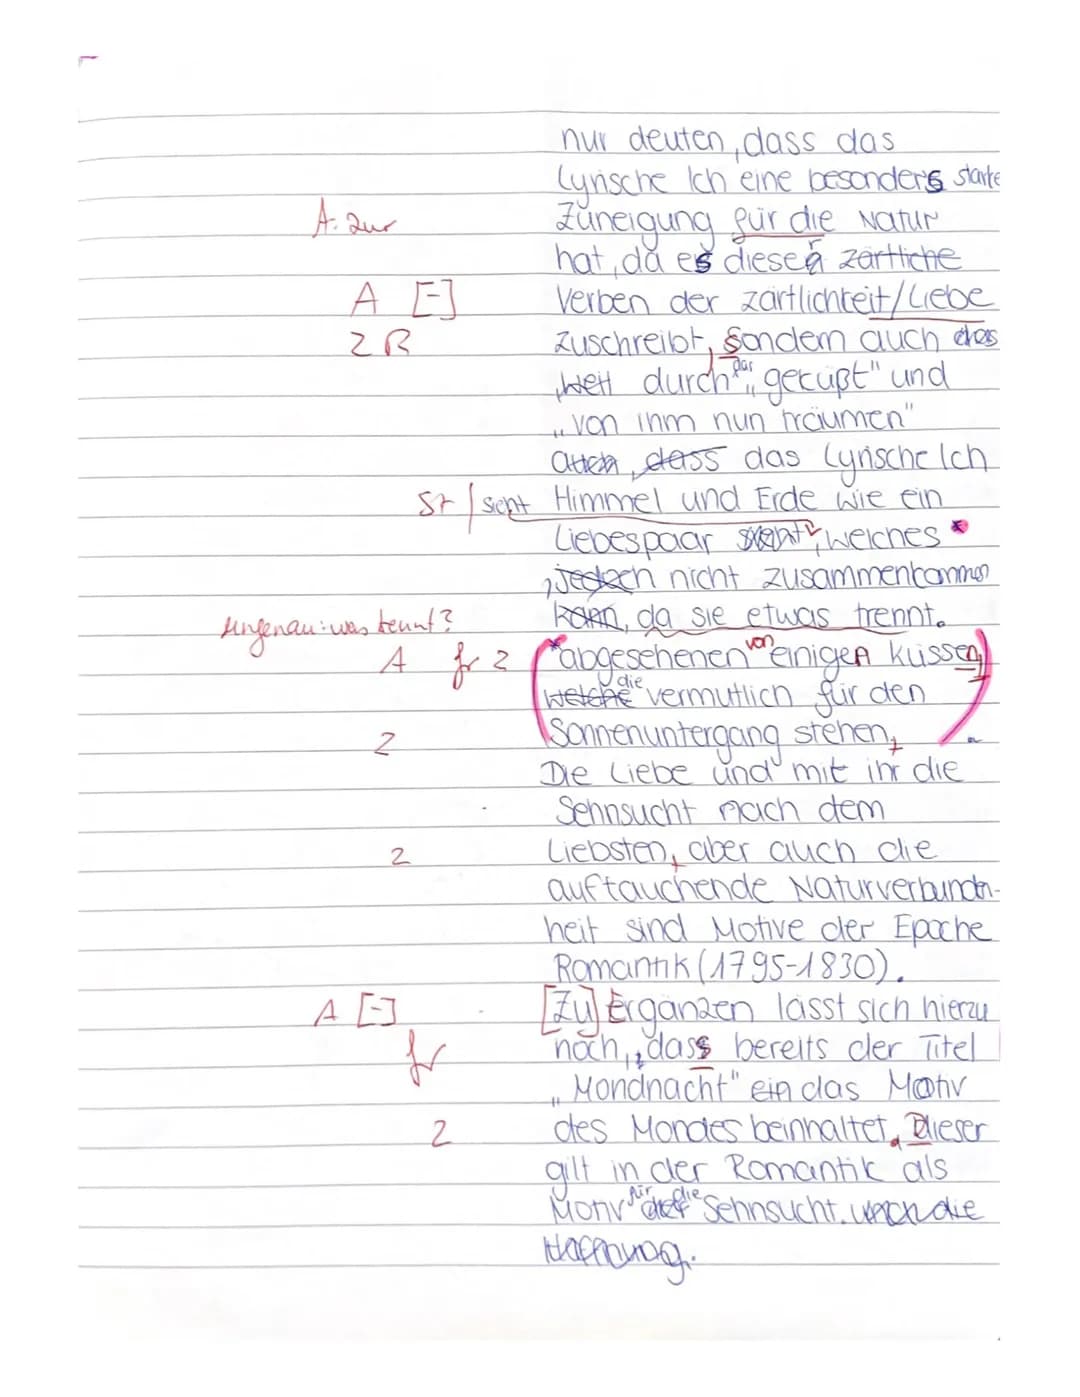 nur deuten, dass das
Lyrische Ich eine besonders starke
A: zur Zuneigung für die Natur
hat, da es dieser zärtliche
A [-] Verben der Zärtlichkeit/Liebe
Z R zuschreibt, Sondern auch
durch das "geküßt" und
"von ihm nun träumen"
auch, dass das Lyrische Ich
St | sieht Himmel und Erde wie ein
Liebespaar sieht, welches *
, jedoch nicht zusammenkommen
ungenau: was trennt? kann, da sie etwas trennt.
A fr Z (*abgesehenen von einigen küssen,
welche die vermutlich für den
Z Sonnenuntergang stehen, )
Die Liebe und mit ihr die
Sehnsucht nach dem
Z Liebsten, aber auch die
auftauchende Naturverbundn-
heit sind Motive der Epoche
Romantik (1795-1830).
A [-] [Zu] Ergänzen lässt sich hierzu
fr noch, dass bereits der Titel
"Mondnacht" ein das Motiv
Z des Mondes beinhaltet. Dieser
gilt in der Romantik als
Motiv für die Sehnsucht. die
Hoffnung.